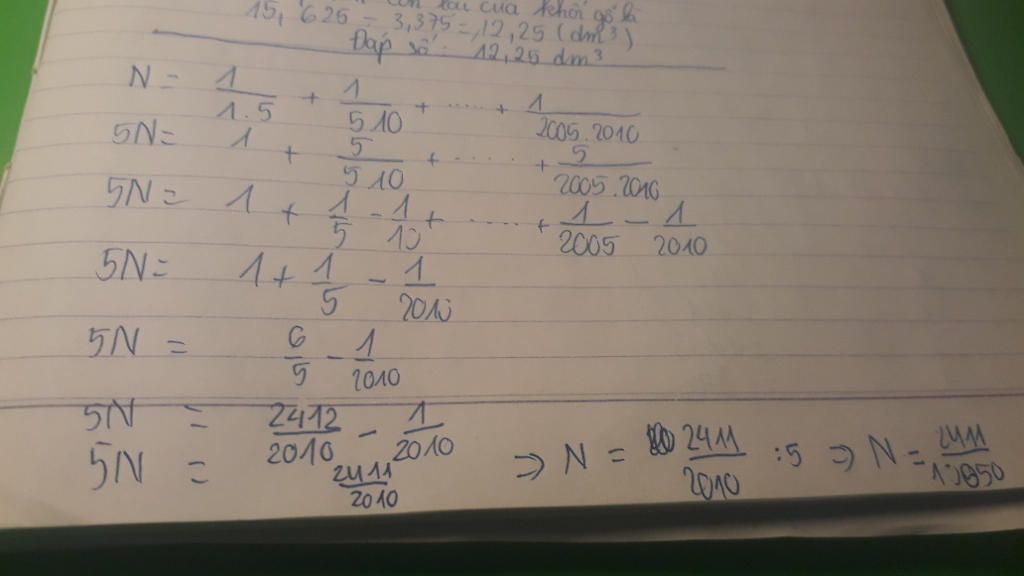 còn lại của khối gỗ là
15,625 - 3,375 = 12,25 (dm³)
Đáp số: 12,25 dm³
N = 1/1.5 + 1/5.10 + ..... + 1/2005.2010
5N = 1 + 5/5.10 + ..... + 5/2005.2010
5N = 1 + 1/5 - 1/10 + ..... + 1/2005 - 1/2010
5N = 1 + 1/5 - 1/2010
5N = 6/5 - 1/2010
5N = 2412/2010 - 1/2010
5N = 2411/2010 ⇒ N = 2411/2010 : 5 ⇒ N = 2411/10050